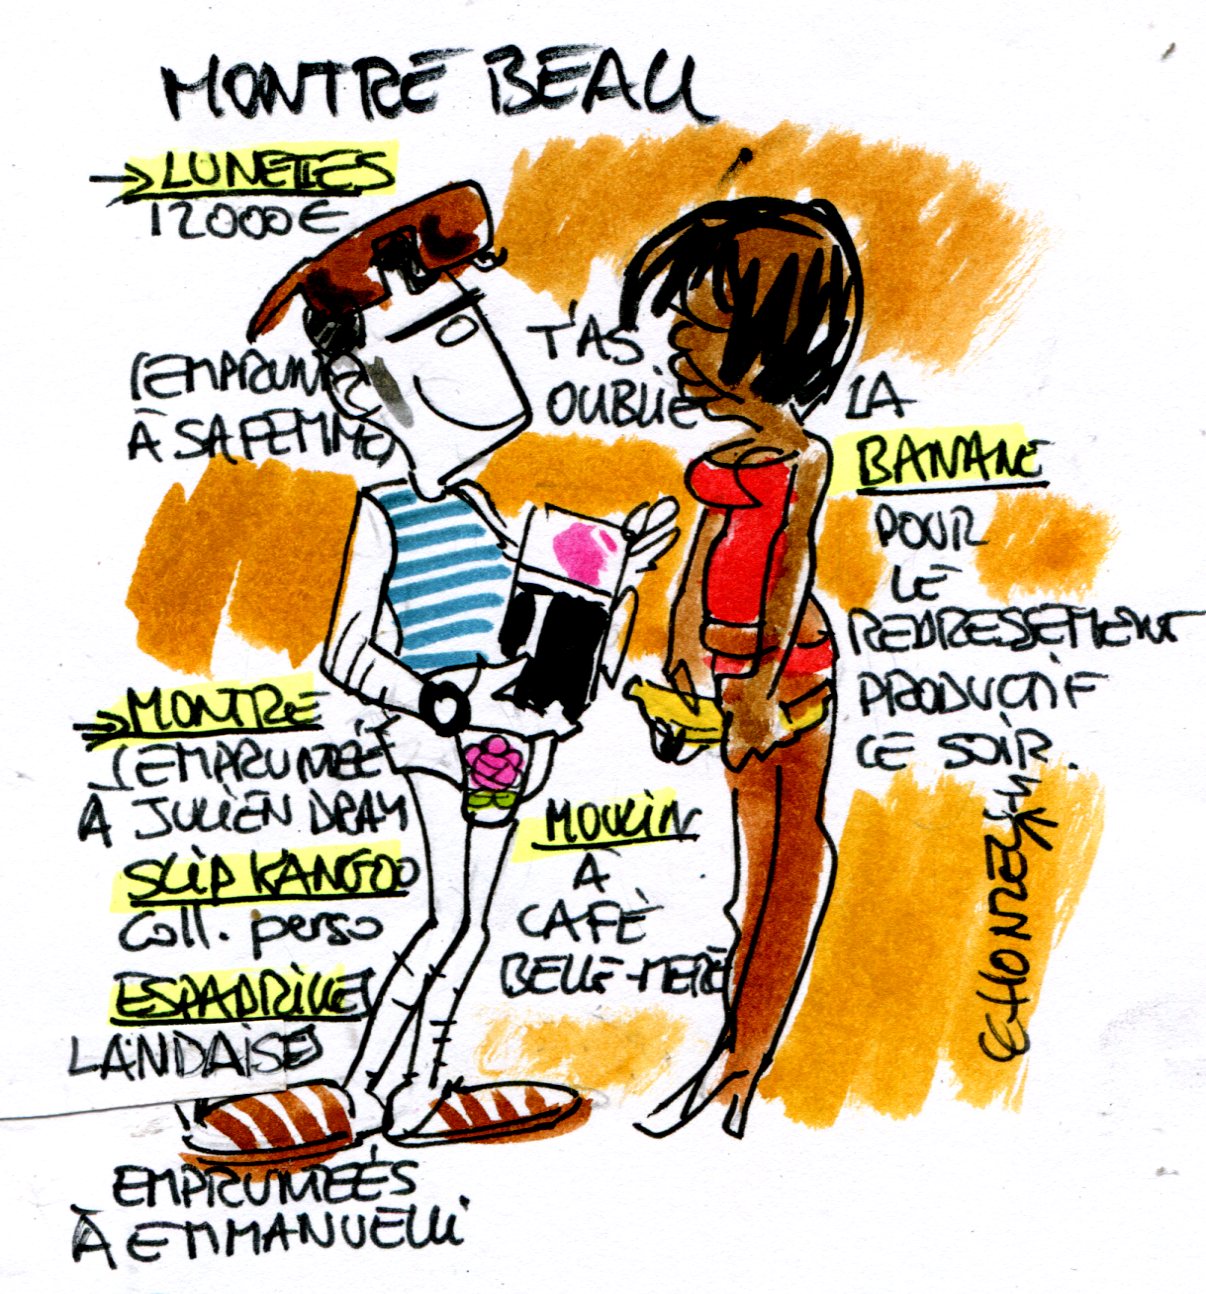 MONTRE BEAU
LUNETTES
12000€
(EMPRUNTÉ
À SA FEMME)
T'AS
OUBLIÉ
LA
BANANE
POUR
LE
REDRESSEMENT
PRODUCTIF
CE SOIR.
MONTRE
(EMPRUNTÉE
À JULIEN DRAY
SLIP KANGOO
Coll. perso
ESPADRILLES
LANDAISES
EMPRUNTÉES
À EMMANUELLI
MOULIN
A
CAFÉ
BELLE-MÈRE